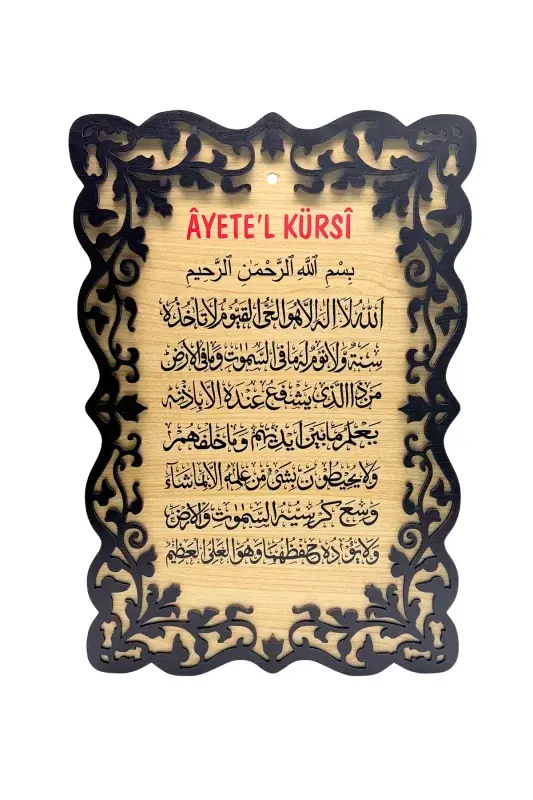 ÂYETE'L KÜRSÎ
بِسْمِ اللّٰهِ الرَّحْمٰنِ الرَّحِيمِ
اَللّٰهُ لَٓا اِلٰهَ اِلَّا هُوَ الْحَيُّ الْقَيُّومُ لَا تَأْخُذُهُ
سِنَةٌ وَلَا نَوْمٌ لَهُ مَا فِي السَّمٰوَاتِ وَمَا فِي الْاَرْضِ
مَنْ ذَا الَّذِي يَشْفَعُ عِنْدَهُ اِلَّا بِاِذْنِهِ
يَعْلَمُ مَا بَيْنَ اَيْدِيهِمْ وَمَا خَلْفَهُمْ
وَلَا يُحِيطُونَ بِشَيْءٍ مِنْ عِلْمِهِ اِلَّا بِمَا شَٓاءَ
وَسِعَ كُرْسِيُّهُ السَّمٰوَاتِ وَالْاَرْضَ
وَلَا يَؤُدُهُ حِفْظُهُمَا وَهُوَ الْعَلِيُّ الْعَظِيمُ